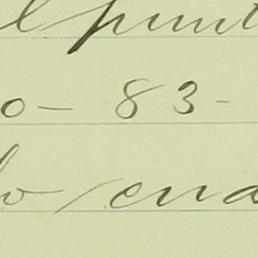 l punt
o - 83 -
lo cua